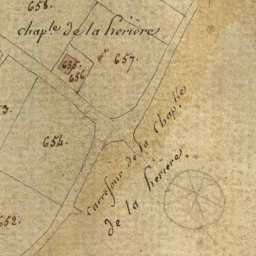 658.
chap.le de la herière
657.
655.
656.
3.
654.
carrefour de la chap.lle
de la herière.
652.